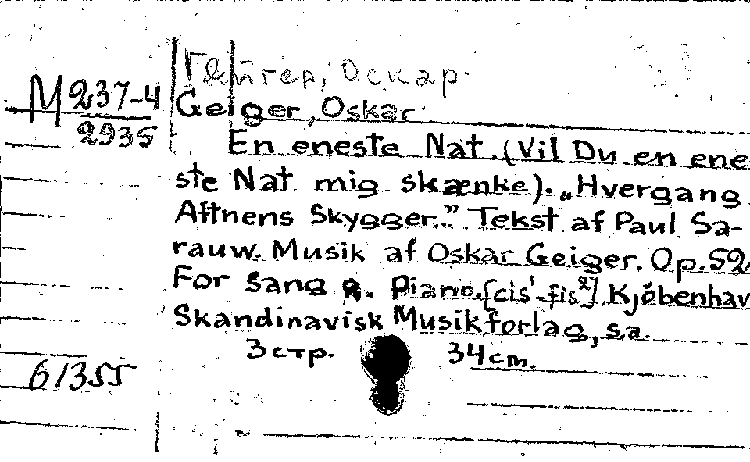 Гейгер, Оскар.
M 237-4
2935
Geiger, Oskar
En eneste Nat. (Vil Du en ene
ste Nat mig skænke). „Hvergang
Aftnens Skygger." Tekst af Paul Sa-
rauw. Musik af Oskar Geiger. Op. 52.
For sang o. piano. [cis¹-fis²] Kjøbenhav
Skandinavisk Musikforlag, s.a.
3 стр. 34 cm.
61355